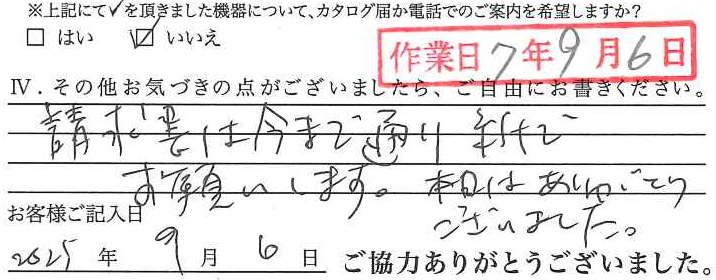 ※上記にて✓を頂きました機器について、カタログ届か電話でのご案内を希望しますか?
□ はい ☑ いいえ
作業日 7年9月6日
Ⅳ．その他お気づきの点がございましたら、ご自由にお書きください。
請求書は今まで通り
お願いします。本日はありがとう
ございました。
お客様ご記入日
2025年 9月 6日 ご協力ありがとうございました。